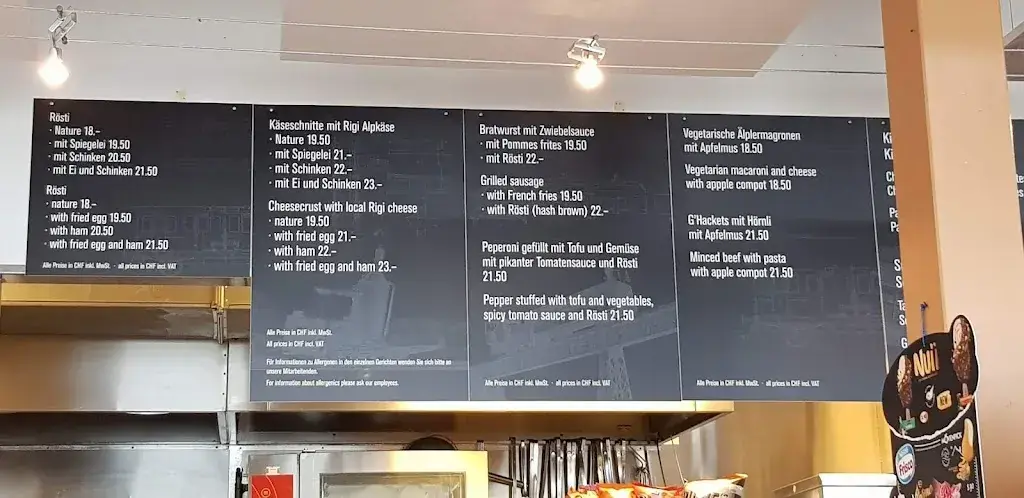 Rösti
· Nature 18.–
· mit Spiegelei 19.50
· mit Schinken 20.50
· mit Ei und Schinken 21.50
Rösti
· nature 18.–
· with fried egg 19.50
· with ham 20.50
· with fried egg and ham 21.50
Alle Preise in CHF inkl. MwSt. · all prices in CHF incl. VAT
Käseschnitte mit Rigi Alpkäse
· Nature 19.50
· mit Spiegelei 21.–
· mit Schinken 22.–
· mit Ei und Schinken 23.–
Cheesecrust with local Rigi cheese
· nature 19.50
· with fried egg 21.–
· with ham 22.–
· with fried egg and ham 23.–
Alle Preise in CHF inkl. MwSt.
All prices in CHF incl. VAT
Für Informationen zu Allergenen in den einzelnen Gerichten wenden Sie sich bitte an
unsere Mitarbeitenden.
For information about allergenics please ask our employees.
Bratwurst mit Zwiebelsauce
· mit Pommes frites 19.50
· mit Rösti 22.–
Grilled sausage
· with French fries 19.50
· with Rösti (hash brown) 22.–
Peperoni gefüllt mit Tofu und Gemüse
mit pikanter Tomatensauce und Rösti
21.50
Pepper stuffed with tofu and vegetables,
spicy tomato sauce and Rösti 21.50
Alle Preise in CHF inkl. MwSt. · all prices in CHF incl. VAT
Vegetarische Älplermagronen
mit Apfelmus 18.50
Vegetarian macaroni and cheese
with appple compot 18.50
G'Hackets mit Hörnli
mit Apfelmus 21.50
Minced beef with pasta
with apple compot 21.50
Alle Preise in CHF inkl. MwSt. · all prices in CHF incl. VAT
Nuii
NEW
MÖVENPICK
Frisco